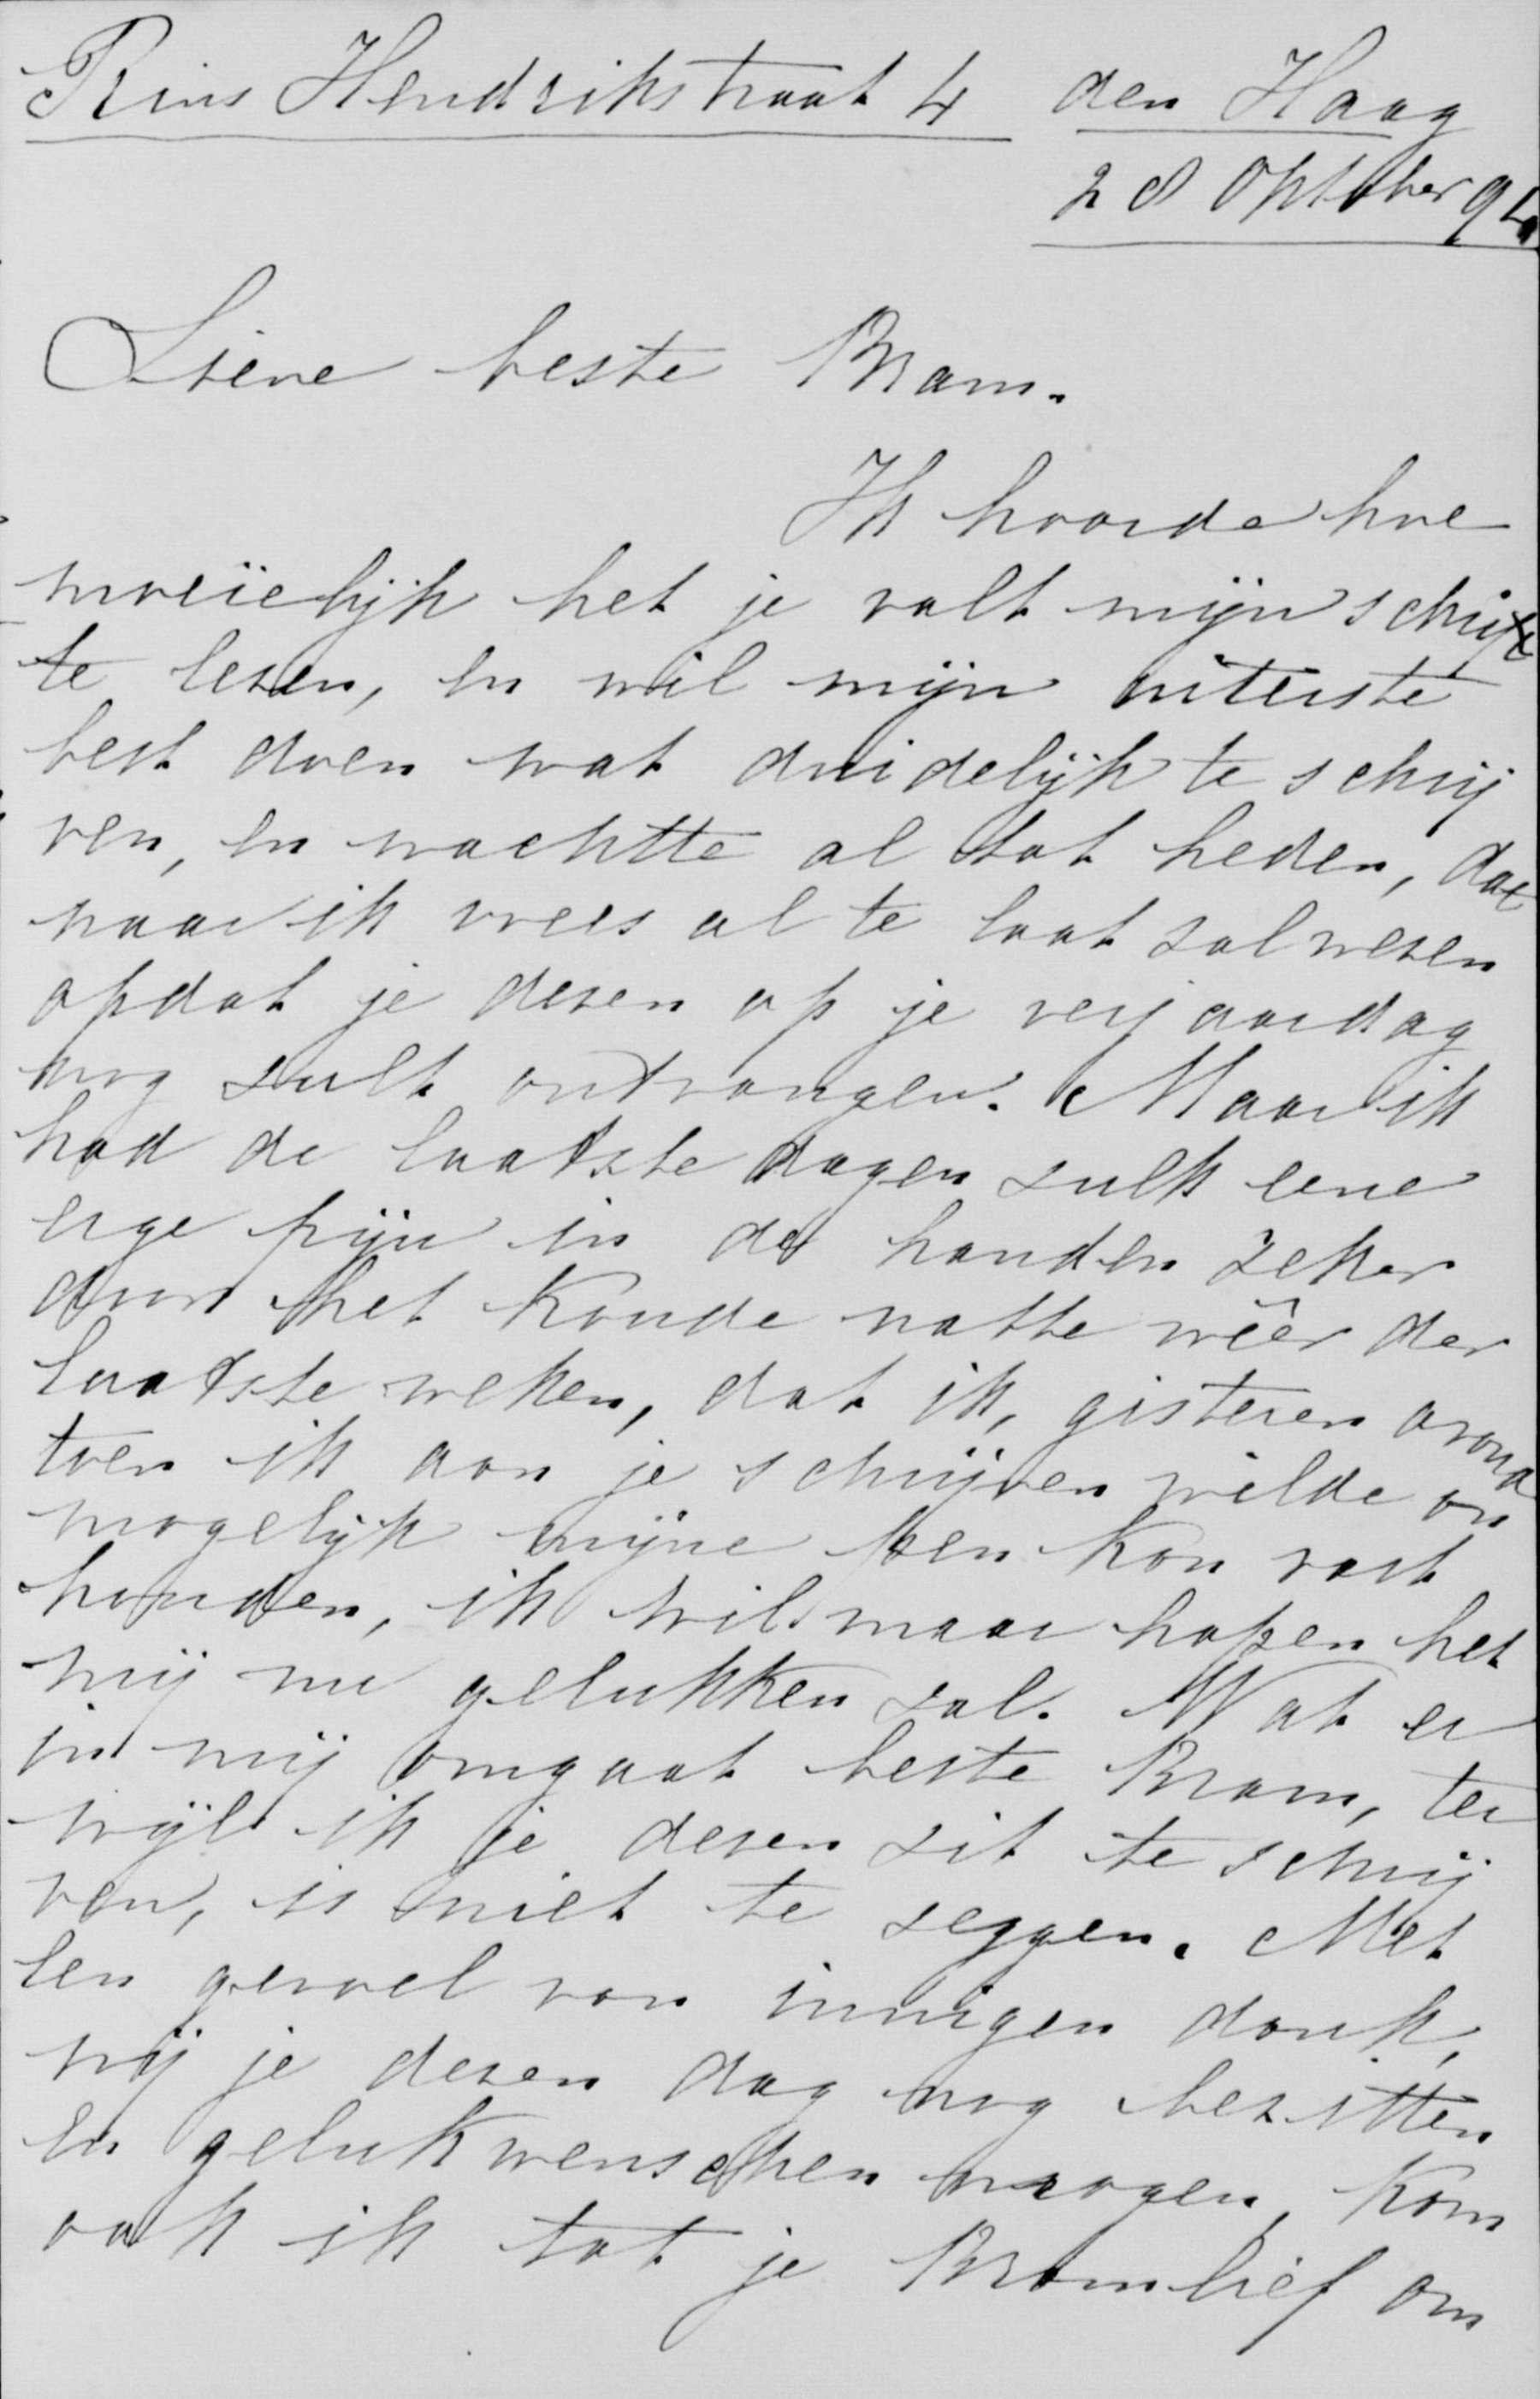 Prins Hendrikstraat 4 den Haag
28 Oktober 94
Lieve beste Bram.
Ik hoorde hoe
moeïelijk het je valt mijn schrift
te lezen, en wil mijn uiterste
best doen wat duidelijk te schrij
ven, en wachtte al tot heden, dat
naar ik vrees al te laat zal wezen
opdat je dezen op je verjaardag
nog zult ontvangen. Maar ik
had de laatste dagen zulk eene
erge pijn in de handen zeker
door het koude natte wêer der
laatste weken, dat ik, gisteren avond
toen ik aan je schrijven wilde on
mogelijk mijne pen kon vast
houden, ik wil maar hopen het
mij nu gelukken zal. Wat er
in mij omgaat beste Bram, ter
wijl ik je dezen zit te schrij
ven, is niet te zeggen. Met
een gevoel van innigen dank,
wij je dezen dag nog bezitten
en gelukwenschen mogen, kom
ook ik tot je Bramlief om